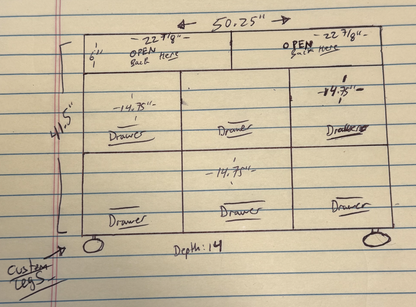 50.25"
22 7/8"
OPEN
Back Here
22 7/8"
OPEN
Back Here
6"
41.5"
14.75"
Drawer
Drawer
14.75"
Drawer
14.75"
Drawer
Drawer
Drawer
Depth: 14
custom
Legs